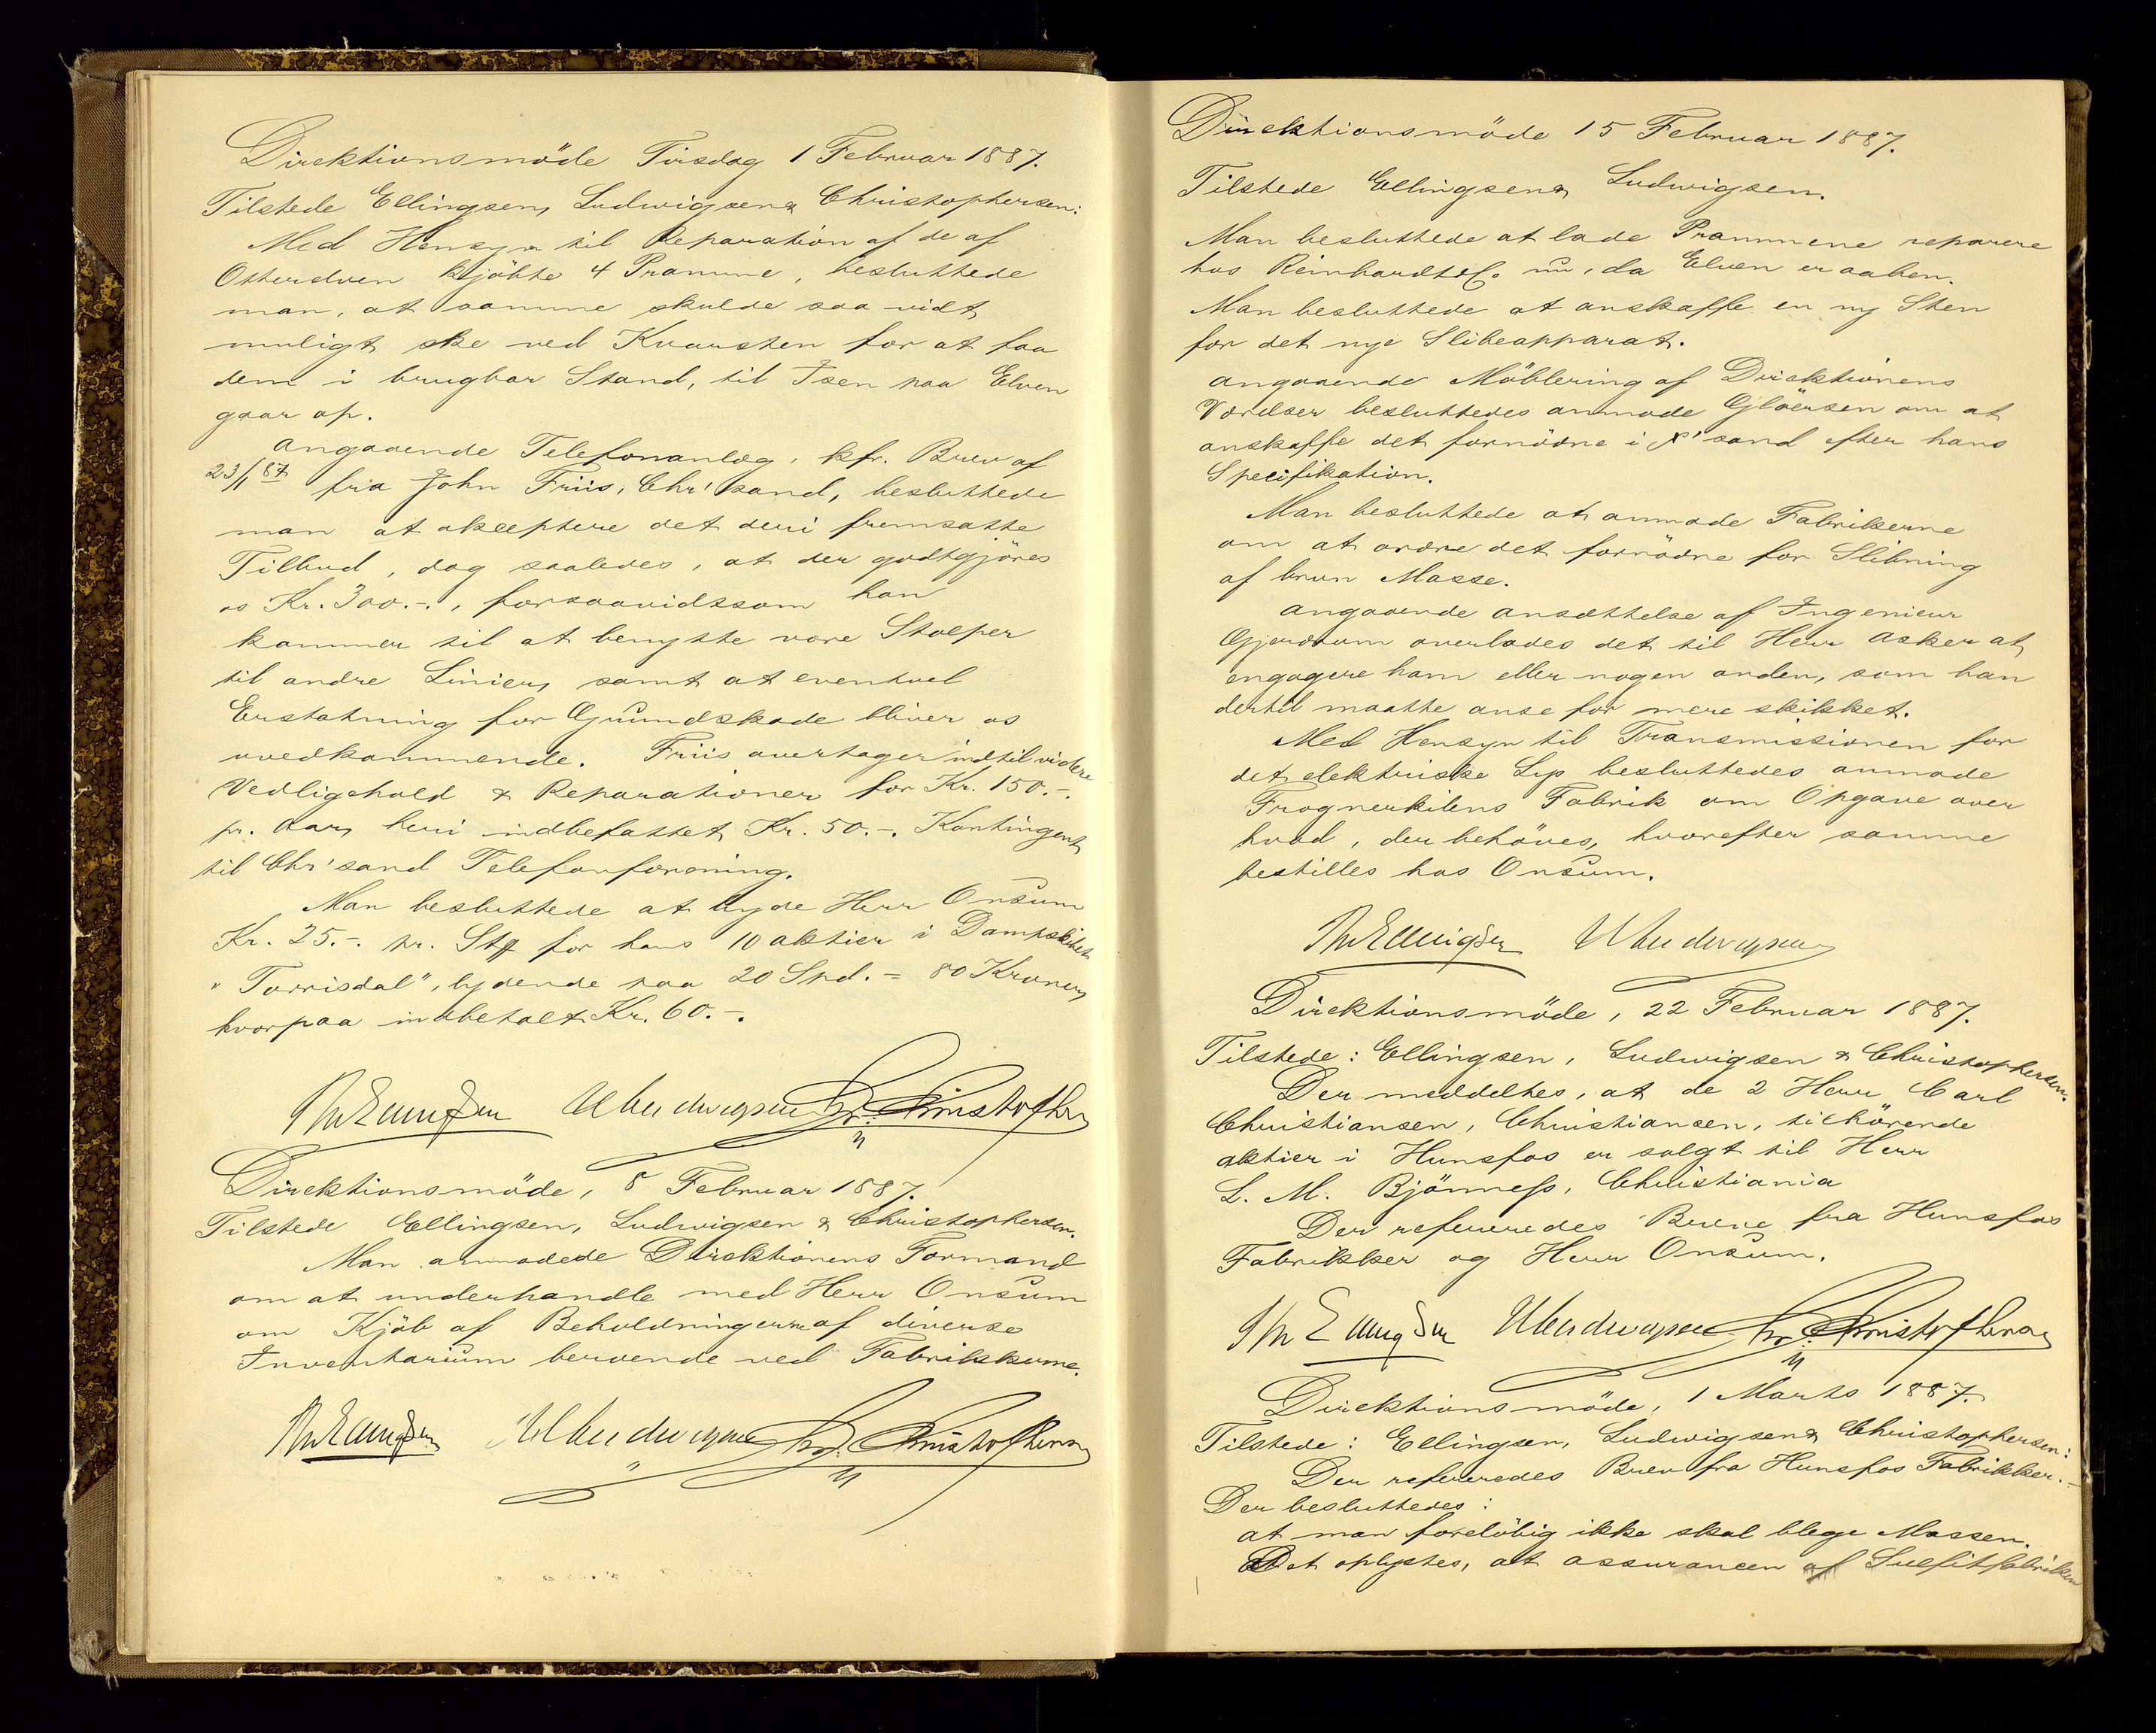 Direktionsmöde Tirsdag 1 Februar 1887.
Tilstede Ellingsen, Ludwigsen & Christophersen:
Med Hensyn til Reparation af de af
Otterelven kjöbte 4 Pramme, besluttede
man, at samme skulde saa vidt
muligt ske ved Kvarsten for at faa
dem i brugbar Stand, til Isen paa Elven
gaar op.
Angaaende Telefonanlæg, kfr. Brev af
23/1 87 fra John Friis, Chr'sand, besluttede
man at akceptere det deri fremsatte
Tilbud, dog saaledes, at der godtgjöres
os Kr. 300.-, forsaavidtsom han
kommer til at benytte vore Stolper
til andre Linier, samt at eventuel
Erstatning for Grundskade bliver os
uvedkommende. Friis overtager indtil videre
Vedligehold & Reparationer for Kr. 150.-.
pr. Aar, heri indbefattet Kr. 50.-. Kontingent
til Chr'sand Telefonforening.
Man besluttede at byde Herr Onsum
Kr. 25.-. pr. Stk for hans 10 Aktier i Dampskibet
"Torrisdal", lydende paa 20 Spd. = 80 Kroner,
hvorpaa indbetalt Kr. 60.-.
Th Ellingsen U Ludwigsen Chr. Christophersen
Direktionsmöde, 8 Februar 1887.
Tilstede Ellingsen, Ludwigsen & Christophersen.
Man anmodede Direktionens Formand
om at underhandle med Herr Onsum
om Kjöb af Beholdningerne af diverse
Inventarium beroende ved Fabrikkerne.
Th Ellingsen U Ludwigsen Chr. Christophersen
Direktionsmöde 15 Februar 1887.
Tilstede Ellingsen & Ludwigsen.
Man besluttede at lade Prammene reparere
hos Reinhardt & Co nu, da Elven er aaben.
Man besluttede at anskaffe en ny Sten
for det nye Slibeapparat.
Angaaende Möblering af Direktionens
Værelser besluttedes anmode Glöersen om at
anskaffe det fornödne i X'sand efter hans
Specifikation.
Man besluttede at anmode Fabrikerne
om at ordre det fornödne for Slibning
af brun Masse.
Angaaende Ansættelse af Ingenieur
Gjerdrum overlades det til Herr Asker at
engagere ham eller nogen anden, som han
dertil maatte anse for mere skikket.
Med Hensyn til Transmissionen for
det elektriske Lys besluttedes anmode
Frognerkilens Fabrik om Opgave over
hvad, der behöves, hvorefter samme
bestilles hos Onsum.
Th Ellingsen U Ludwigsen
Direktionsmöde, 22 Februar 1887.
Tilstede: Ellingsen, Ludwigsen & Christophersen.
Der meddeltes, at de 2 Herr Carl
Christiansen, Christiansen, tilhörende
Aktier i Hunsfos er solgt til Herr
L. M. Bjönness, Christiania
Der refereredes Breve fra Hunsfos
Fabrikker og Herr Onsum.
Th Ellingsen U Ludwigsen Chr. Christophersen
Direktionsmöde, 1 Marts 1887.
Tilstede: Ellingsen, Ludwigsen & Christophersen:
Der refereredes Brev fra Hunsfos Fabrikker.-
Der besluttedes:
at man forelöbig ikke skal blege Massen.
Det oplystes, at Assurancen af Sulfitfabriken